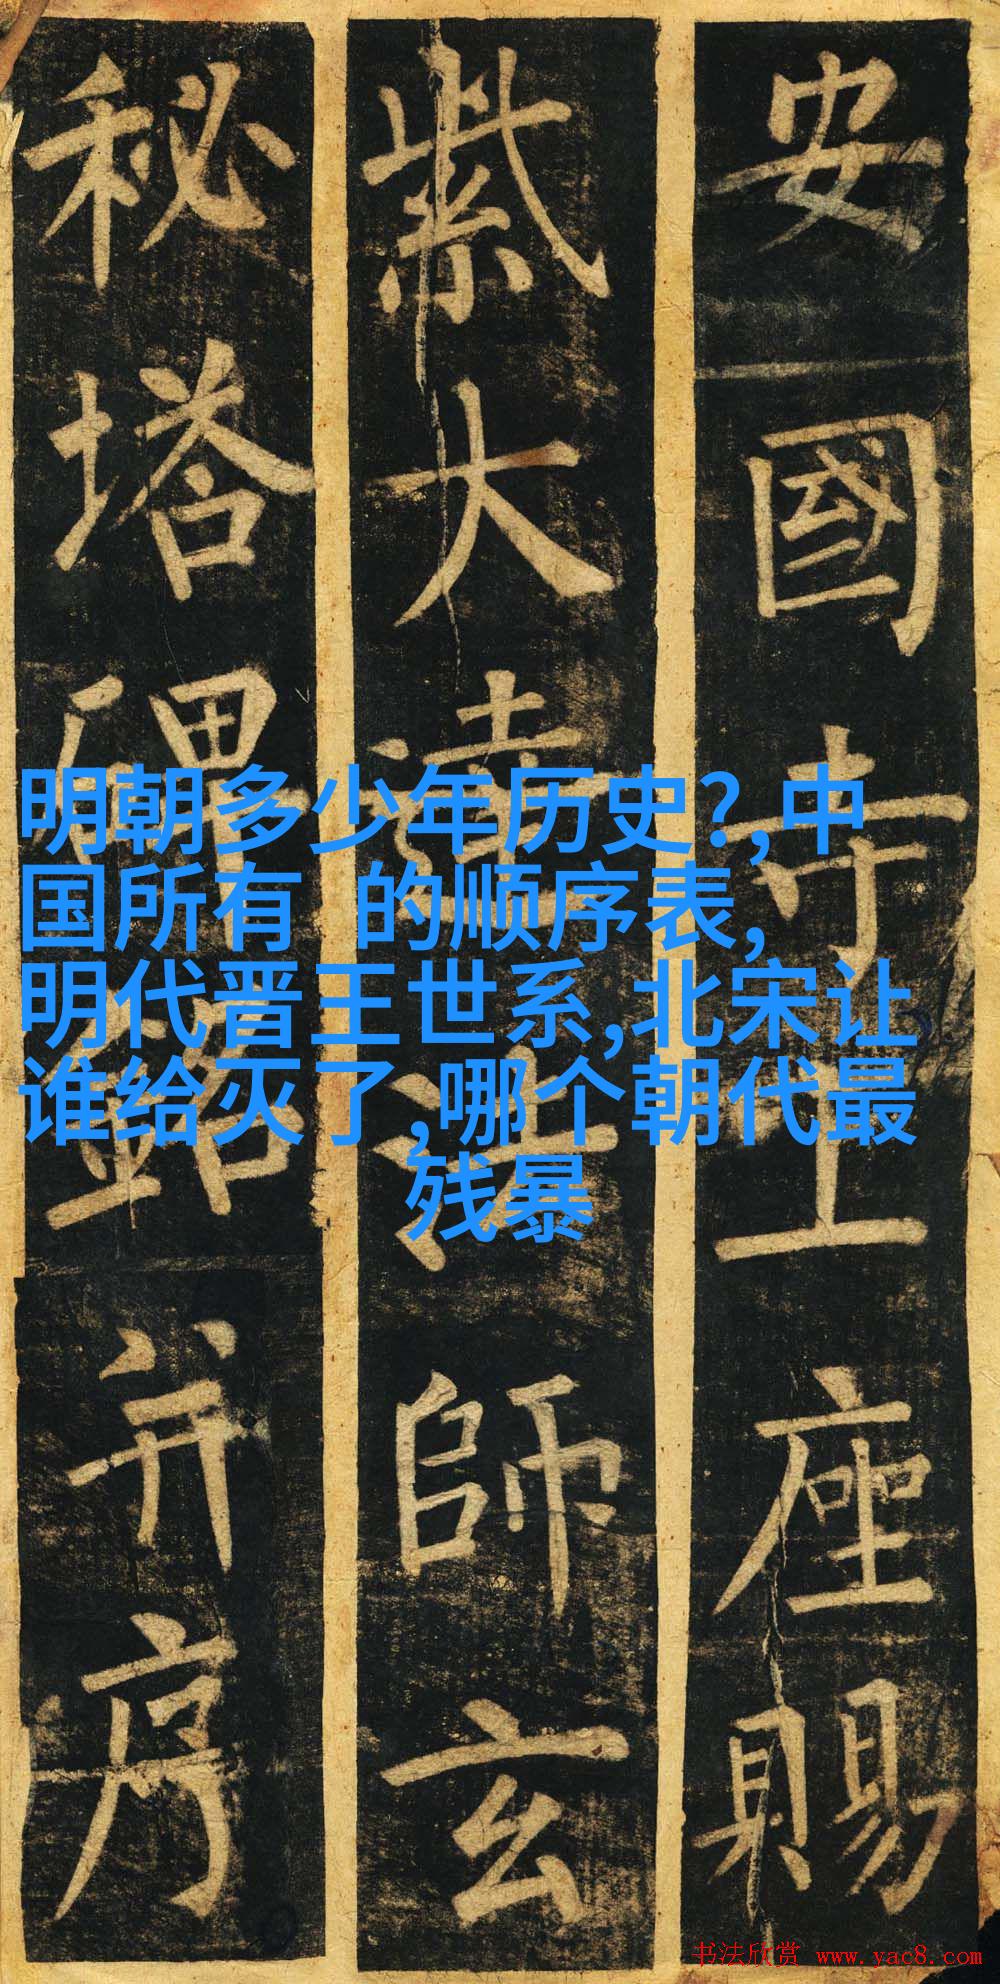 安國寺上座賜
紫大達法師玄
秘塔碑銘并序
明朝多少年历史?,中
国所有 的顺序表,
明代晋王世系,北宋让
谁给灭了,哪个朝代最
残暴
书法欣赏 www.yac8.com